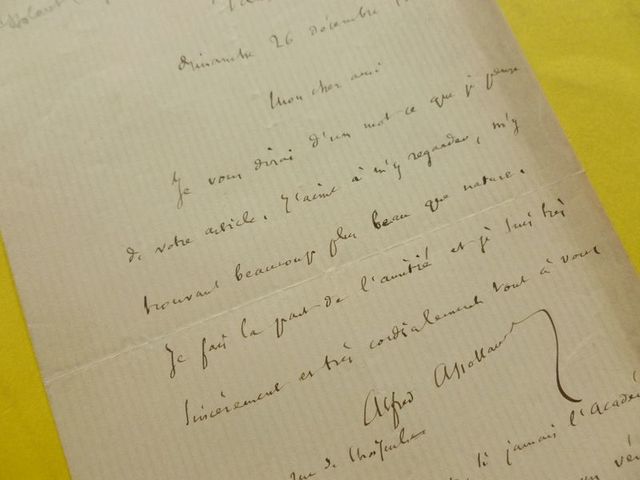 dimanche 26 décembre
Mon cher ami
Je vous dirai d'un mot ce que je pense
de votre article. J'aime à m'y regarder, m'y
trouvant beaucoup plus beau que nature.
Je fais la part de l'amitié et je suis très
sincèrement et très cordialement tout à vous
Alfred Assollant
rue de
si jamais l'Acadé